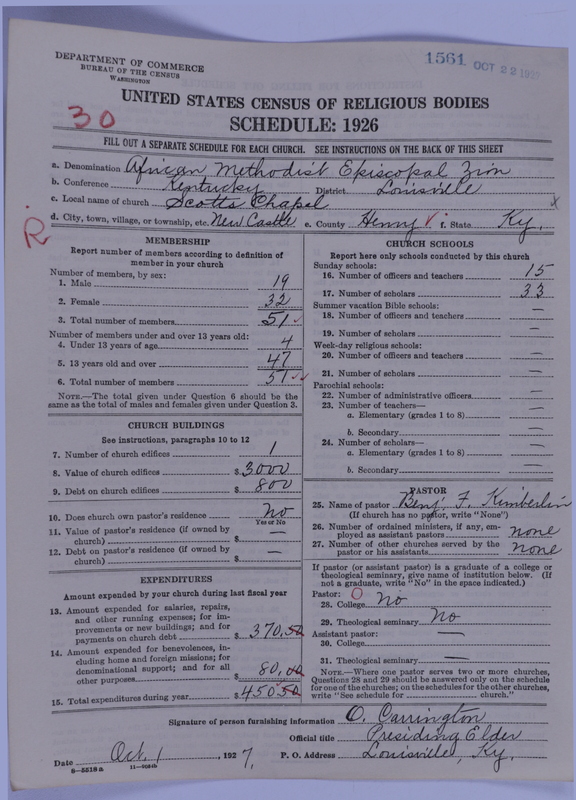 DEPARTMENT OF COMMERCE
BUREAU OF THE CENSUS
WASHINGTON
1561 OCT 22 192
UNITED STATES CENSUS OF RELIGIOUS BODIES
SCHEDULE: 1926
30
FILL OUT A SEPARATE SCHEDULE FOR EACH CHURCH. SEE INSTRUCTIONS ON THE BACK OF THIS SHEET
a. Denomination African Methodist Episcopal Zion
b. Conference Kentucky District Louisville
c. Local name of church Scotts Chapel x
d. City, town, village, or township, etc. New Castle e. County Henry f. State Ky.
R
MEMBERSHIP
Report number of members according to definition of
member in your church
Number of members, by sex:
1. Male 19
2. Female 32
3. Total number of members 51
Number of members under and over 13 years old:
4. Under 13 years of age 4
5. 13 years old and over 47
6. Total number of members 51
NOTE.—The total given under Question 6 should be the
same as the total of males and females given under Question 3.
CHURCH BUILDINGS
See instructions, paragraphs 10 to 12
7. Number of church edifices 1
8. Value of church edifices $ 3000
9. Debt on church edifices $ 800
10. Does church own pastor's residence No
Yes or No
11. Value of pastor's residence (if owned by
church) $ —
12. Debt on pastor's residence (if owned by
church) $ —
EXPENDITURES
Amount expended by your church during last fiscal year
13. Amount expended for salaries, repairs,
and other running expenses; for im-
provements or new buildings; and for
payments on church debt $ 370.50
14. Amount expended for benevolences, in-
cluding home and foreign missions; for
denominational support; and for all
other purposes 80.00
15. Total expenditures during year $ 450.50
CHURCH SCHOOLS
Report here only schools conducted by this church
Sunday schools:
16. Number of officers and teachers 15
17. Number of scholars 33
Summer vacation Bible schools:
18. Number of officers and teachers —
19. Number of scholars —
Week-day religious schools:
20. Number of officers and teachers —
21. Number of scholars —
Parochial schools:
22. Number of administrative officers —
23. Number of teachers—
a. Elementary (grades 1 to 8) —
b. Secondary —
24. Number of scholars—
a. Elementary (grades 1 to 8) —
b. Secondary —
PASTOR
25. Name of pastor Benj. F. Kimberlin
(If church has no pastor, write "None")
26. Number of ordained ministers, if any, em-
ployed as assistant pastors none
27. Number of other churches served by the
pastor or his assistants none
If pastor (or assistant pastor) is a graduate of a college or
theological seminary, give name of institution below. (If
not a graduate, write "No" in the space indicated.)
Pastor: O
28. College No
29. Theological seminary No
Assistant pastor:
30. College —
31. Theological seminary —
NOTE.—Where one pastor serves two or more churches,
Questions 28 and 29 should be answered only on the schedule
for one of the churches; on the schedules for the other churches,
write "See schedule for church."
Signature of person furnishing information O. Carrington
Official title Presiding Elder
Date Oct. 1, 1927. P. O. Address Louisville, Ky.
8—5518 a 11—9024b